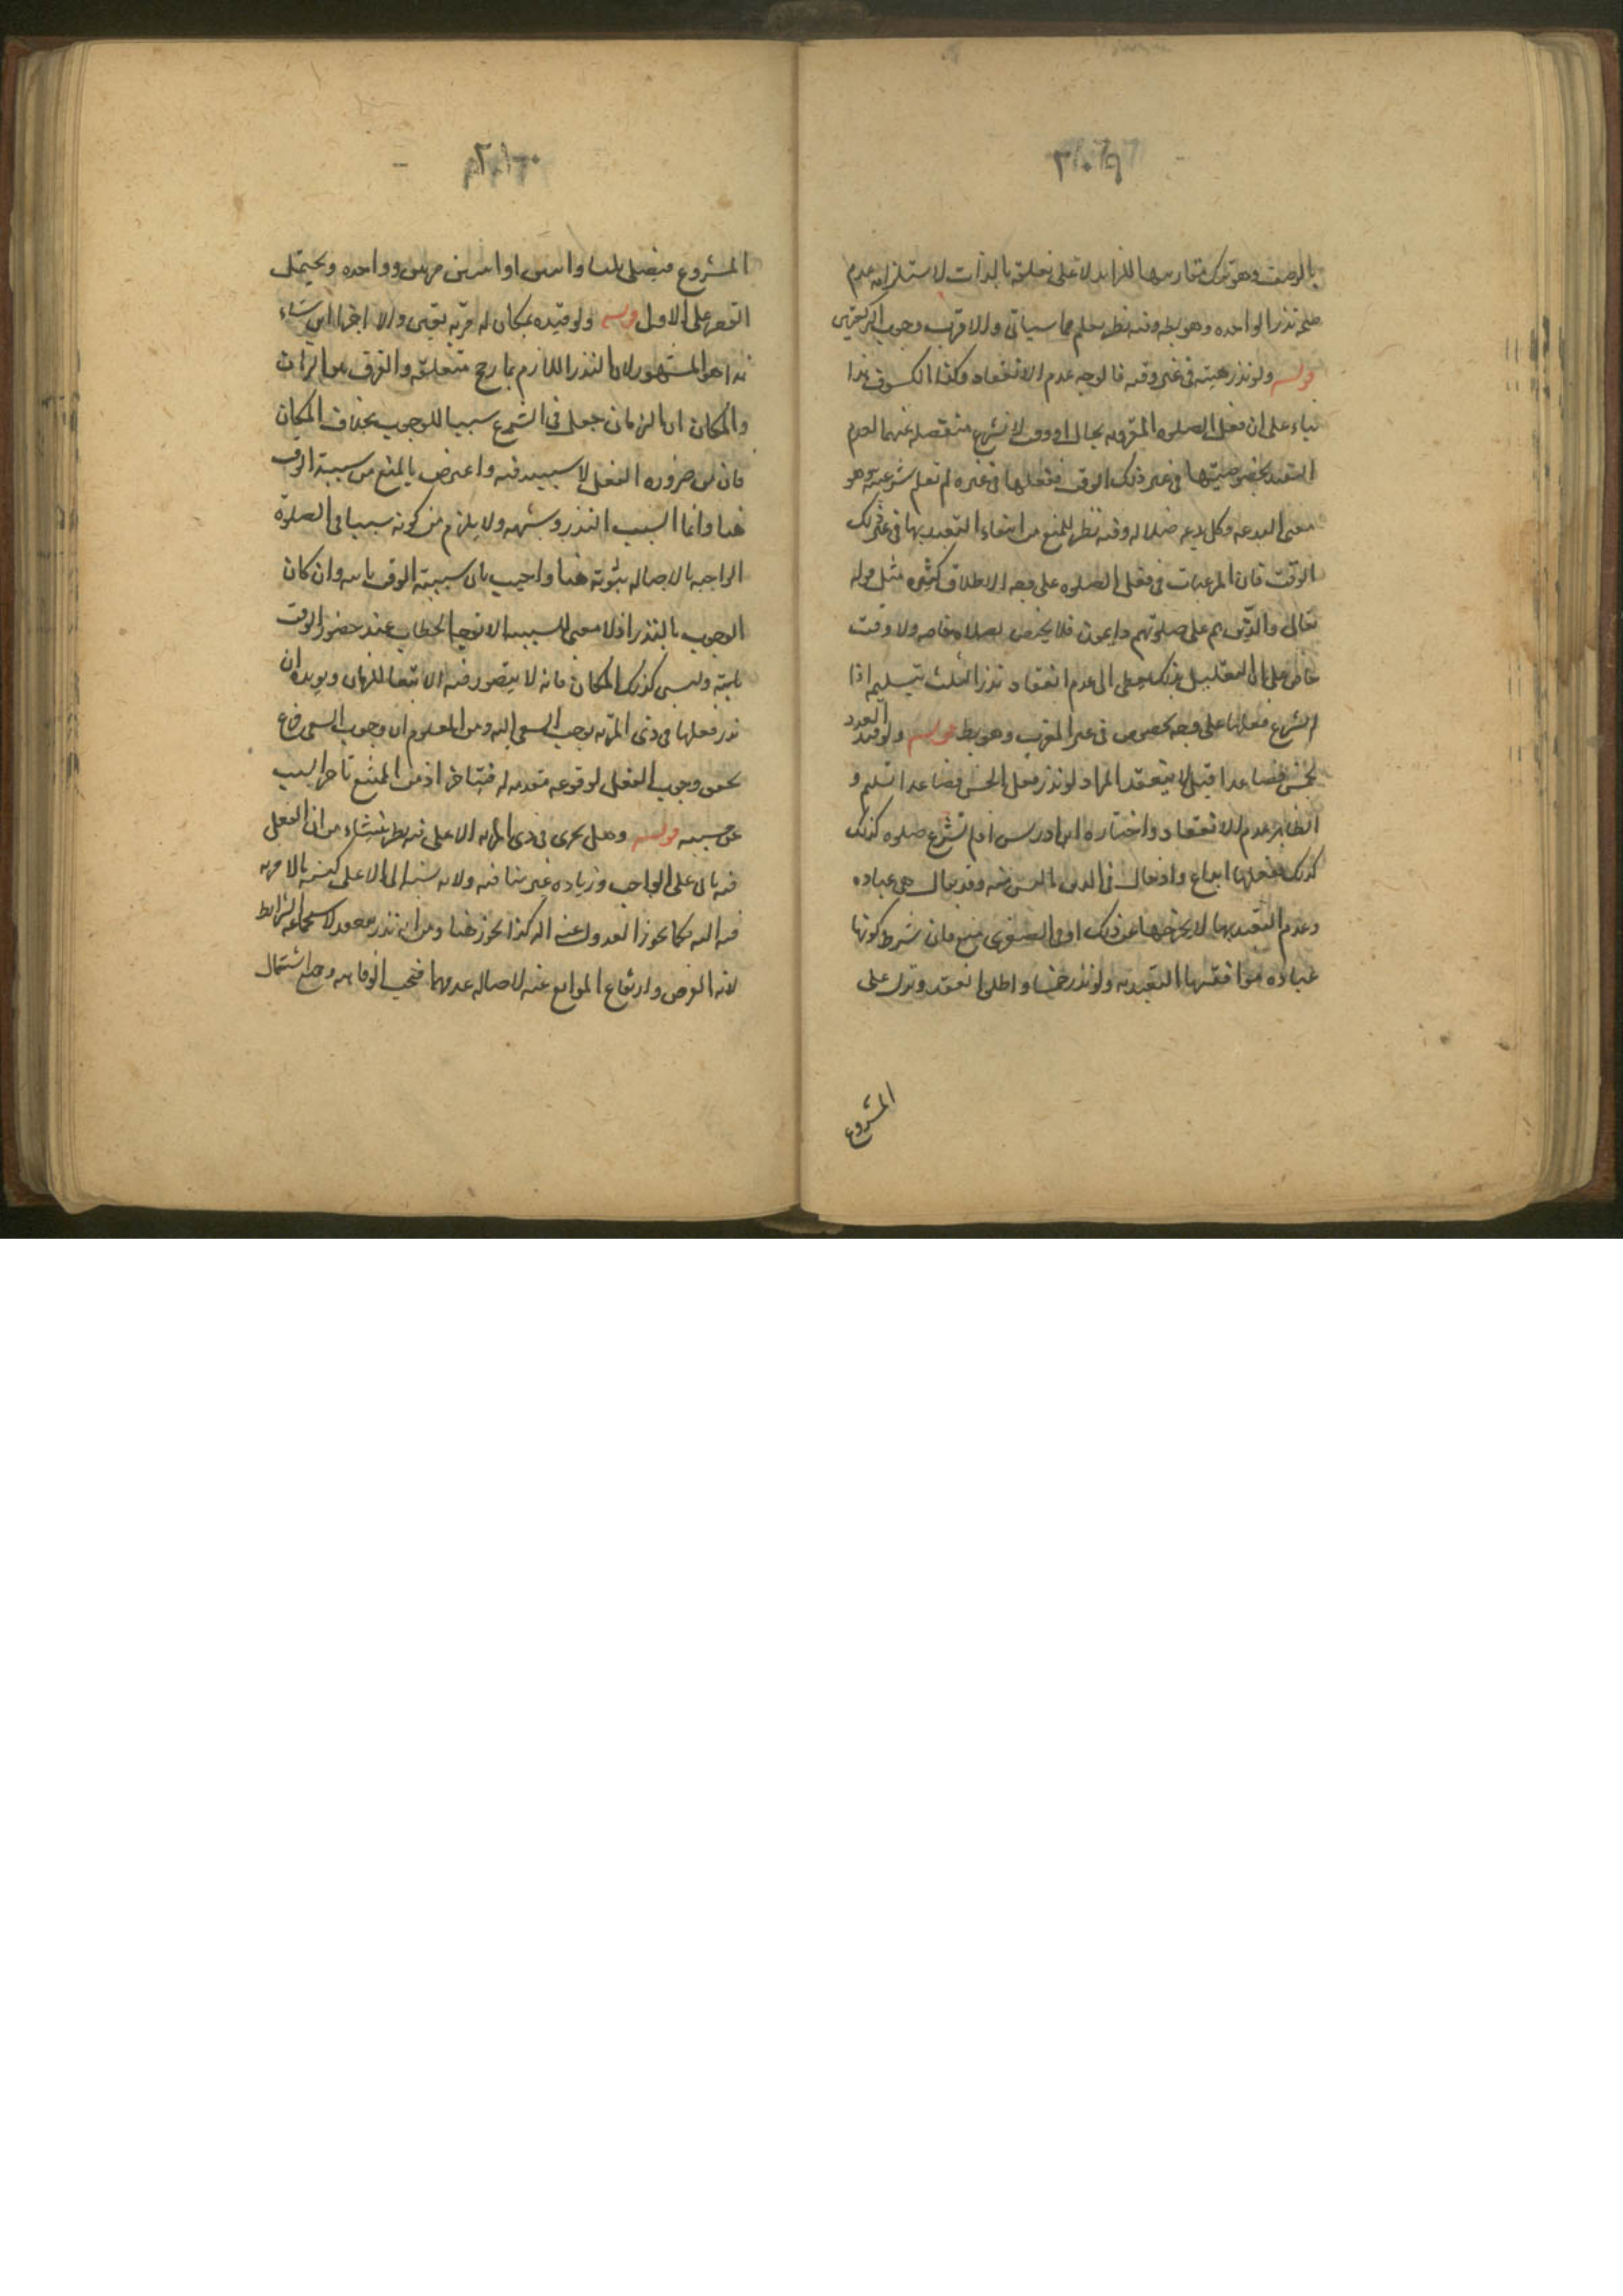 بالوصف وهو ترك مقارنتها للزايد لا على تعلقه بالذات لاستلزامه عدم
صحة نذر الواحده وهو بط وفيه نظر يعلم مما سياتي والاقرب وجوب
قوله ولو نذر هيئه في غير وقته فالوجه عدم الانعقاد وكذا الكسوف هذا
بناء على ان فعل الصلوه المقرونه بحال او وقت لا تشرع منفصله عنهما لعدم
التعبد بخصوصيتها في غير ذلك الوقت ففعلها في غيره لم تعلم شرعيته وهو
معنى البدعه وكل بدعه ضلاله وفيه نظر للمنع من انتفاء التعبد بها في غير ذلك
الوقت فان المرغبات في فعل الصلوه على وجه الاطلاق كثيره مثل قوله
تعالى والذين هم على صلوتهم دايمون فلا يختص بصلاة خاصه ولا وقت
خاص على ان التعليل بذلك يعطي الى عدم انعقاد نذر الثلث بتسليم اذا
لم تشرع فعلها على وجه مخصوص في غير المغرب وهو بط قوله ولو قيد العدد
بخمس فصاعدا قيل لا ينعقد المراد لو نذر فعل الخمس فصاعدا بتسليم و
الظاهر عدم الانعقاد واختاره ابن ادريس اذ لم تشرع صلوه كذلك
كذلك ففعلها ابداع وادخال في الدين ما ليس منه وقد يقال هي عباده
وعدم التعبد بها لا يخرجها عن ذلك اذ فان شرط كونها
عباده موافقتها التعبد به ولو نذر خمسا واطلق انعقد ونزل على
المشروع
المشروع فيصلي ثلثا واثنين او اثنين مرتين وواحده ويحتمل
القصر على الاول قوله ولو قيده بمكان له مزيه تعين والا اجزا اين شاء
هذا هو المشهور لان النذر اللازم بما رجح متعلقه والفرق بين الزمان
والمكان ان الزمان جعل في الشرع سببا للوجوب بخلاف المكان
فانه من ضروره الفعل لا سببيه فيه واعترض بالمنع من سببية الوقت
هنا وانما السبب النذر وشبهه ولا يلزم من كونه سببا في الصلوة
الواجبه بالاصاله ثبوته هنا واجيب بان سببية الوقت ثابته وان كان
الوجوب بالنذر اذ لا معنى للسببيه الا توجه الخطاب عند حضور الوقت
ثابته وليس كذلك المكان فانه لا يتصور فيه الا تبعا للزمان ويويده ان
نذر فعلها في ذي المزيه يوجب السعي اليه ومن المعلوم ان وجوب السعي فرع
تحقق وجوب الفعل لوقوعه مقدمه له فيتاخر اذ من الممتنع تاخر السبب
عن مسببه قوله وهل يجزي في ذي المزيه الاعلى فيه نظر ينشاء من ان الفعل
فيه يأتي على الواجب وزياده غير منافيه ولان نسبة الى الاعلى كنسبة ما لا مزيه
فيه اليه فكما يجوز العدول عنه اليه كذا يجوز هنا ومن انه نذر انعقد لاستجماعه الشرايط
لانه الفرض وارتفاع الموانع عنه لاصاله عدمها فيجب الوفا به ومع اشتمال